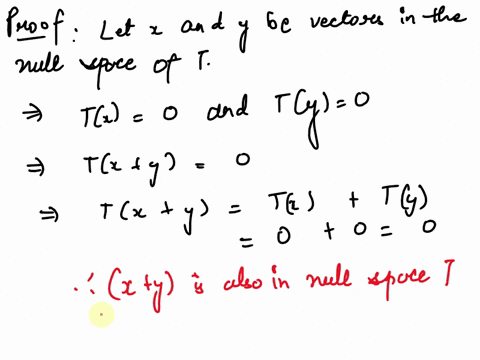 Proof: Let x and y be vectors in the
null space of T.
⇒ T(x) = 0 and T(y) = 0
⇒ T(x + y) = 0
⇒ T(x + y) = T(x) + T(y)
= 0 + 0 = 0
∴ (x+y) is also in null space T